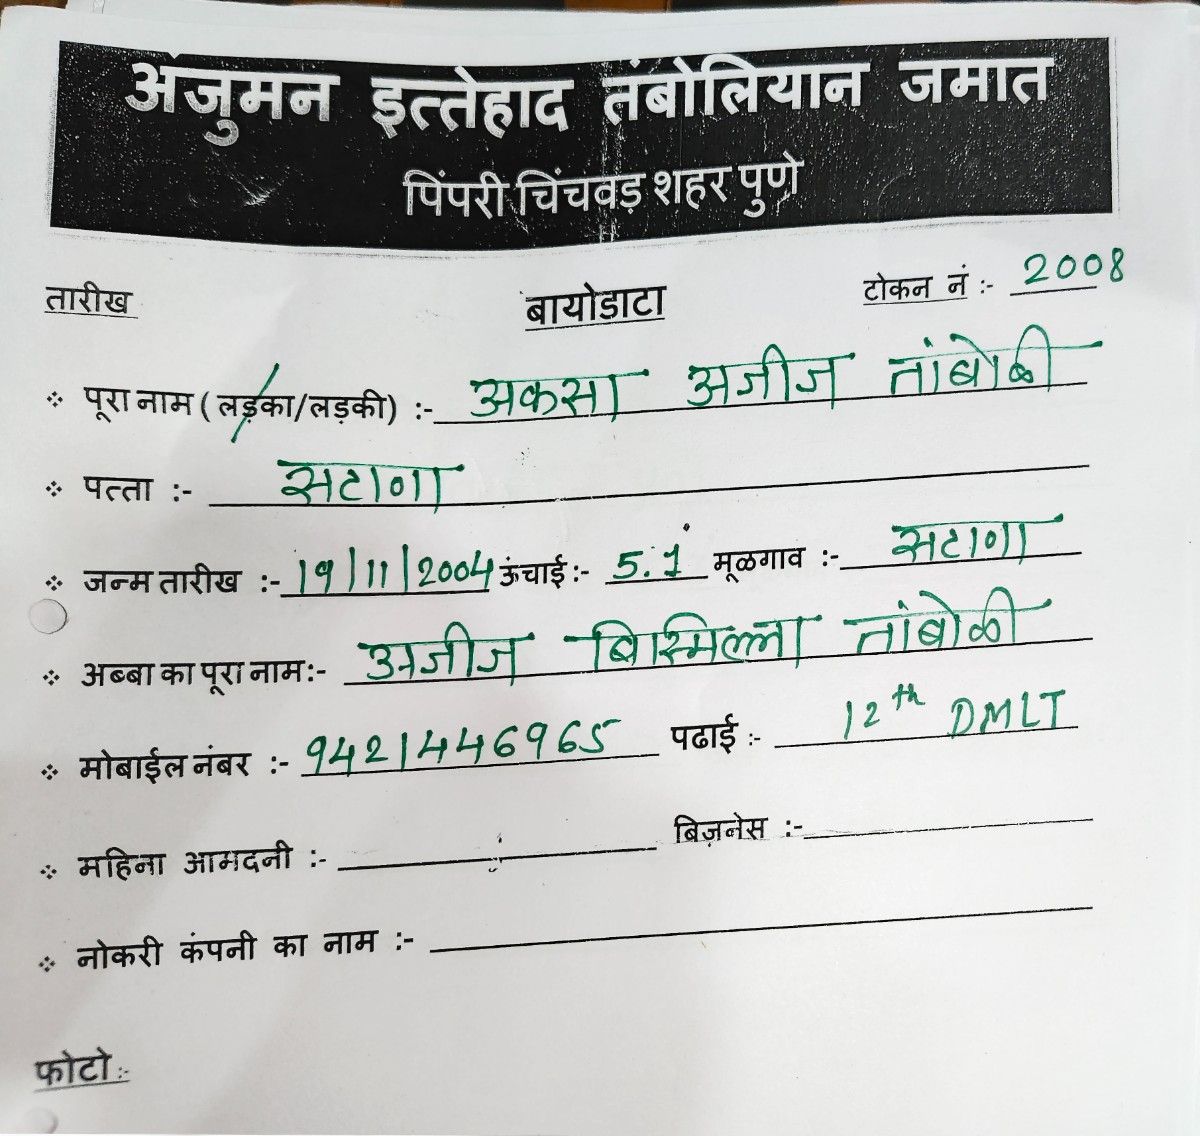 अंजुमन इत्तेहाद तंबोलियान जमात
पिंपरी चिंचवड़ शहर पुणे
तारीख बायोडाटा टोकन नं :- 2008
पूरा नाम ( लड़का/लड़की) :- अकसा अजीज तांबोळी
पत्ता :- सटाणा
जन्म तारीख :- 19/11/2004 ऊंचाई:- 5.1 मूळगाव :- सटाणा
अब्बा का पूरा नाम:- अजीज बिस्मिल्ला तांबोळी
मोबाईल नंबर :- 9421446965 पढाई :- 12th DMLT
महिना आमदनी :- बिज़नेस :-
नोकरी कंपनी का नाम :-
फोटो:-